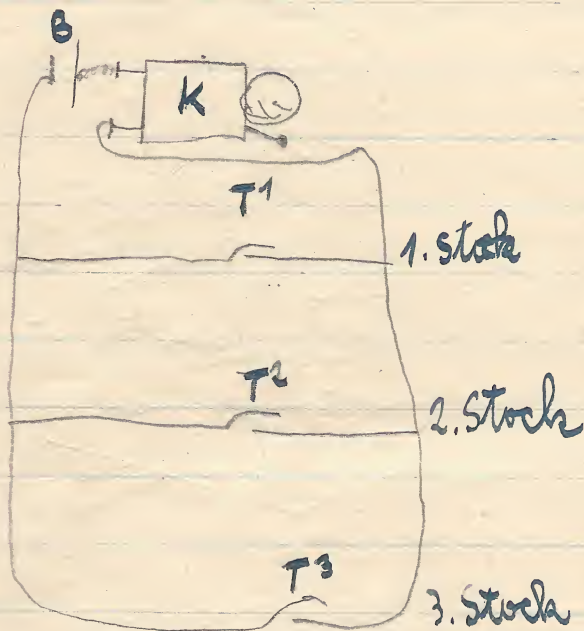 B
K
T1
1. Stock
T2
2. Stock
T3
3. Stock